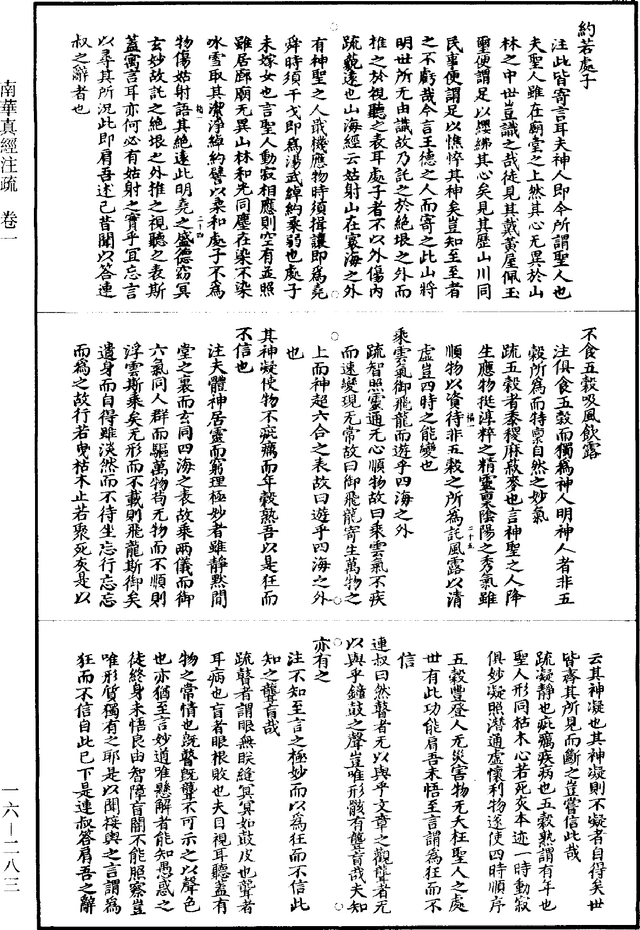 約若處子
注此皆寄言耳夫神人即今所謂聖人也
夫聖人雖在廟堂之上然其心无異於山
林之中世豈識之哉徒見其戴黃屋佩玉
璽便謂足以纓紱其心矣見其歷山川同
民事便謂足以憔悴其神矣豈知至至者
之不虧哉今言王德之人而寄之此山將
明世所无由識故乃託之於絕垠之外而
推之於視聽之表耳處子者不以外傷內
疏藐遠也山海經云姑射山在寰海之外
有神聖之人戢機應物時須揖讓即為堯
舜時須干戈即為湯武綽約柔弱也處子
未嫁女也言聖人動寂相應則空有並照
雖居廊廟无異山林和光同塵在染不染
冰雪取其潔淨綽約譬以柔和處子不為
物傷姑射語其絕遠此明堯之盛德窈冥
玄妙故託之絕垠之外推之視聽之表斯
蓋寓言耳亦何必有姑射之實乎宜忘言
以尋其所況此即肩吾述己昔聞以答連
叔之辭者也
不食五穀吸風飲露
注俱食五穀而獨為神人明神人者非五
穀所為而特稟自然之妙氣
疏五穀者黍稷麻菽麥也言神聖之人降
生應物挺淳粹之精靈稟陰陽之秀氣雖
順物以資待非五穀之所為託風露以清
虛豈四時之能變也
乘雲氣御飛龍而遊乎四海之外
疏智照靈通无心順物故曰乘雲氣不疾
而速變現无常故曰御飛龍寄生萬物之
上而神超六合之表故曰遊乎四海之外
也
其神凝使物不疵癘而年穀熟吾以是狂而
不信也
注夫體神居靈而窮理極妙者雖靜默閒
堂之裏而玄同四海之表故乘兩儀而御
六氣同人群而驅萬物苟无物而不順則
浮雲斯乘矣无形而不載則飛龍斯御矣
遺身而自得雖淡然而不待坐忘行忘忘
而為之故行若曳枯木止若聚死灰是以
云其神凝也其神凝則不凝者自得矣世
皆齊其所見而斷之豈嘗信此哉
疏凝靜也疵癘疾病也五穀熟謂有年也
聖人形同枯木心若死灰本迹一時動寂
俱妙凝照潛通虛懷利物遂使四時順序
五穀豐登人无災害物无夭枉聖人之處
世有此功能肩吾未悟至言謂為狂而不
信
連叔曰然瞽者无以與乎文章之觀聾者无
以與乎鍾鼓之聲豈唯形骸有聾盲哉夫知
亦有之
注不知至言之極妙而以為狂而不信此
知之聾盲哉
疏瞽者謂眼無眹縫冥冥如鼓皮也聾者
耳病也盲者眼根敗也夫目視耳聽蓋有
物之常情也既瞽既聾不可示之以聲色
也亦猶至言妙道唯懸解者能知愚惑之
徒終身未悟良由智障盲闇不能照察豈
唯形質獨有之耶是以聞接輿之言謂為
狂而不信自此已下是連叔答肩吾之辭
南華真經注疏 卷一
一六—二八三